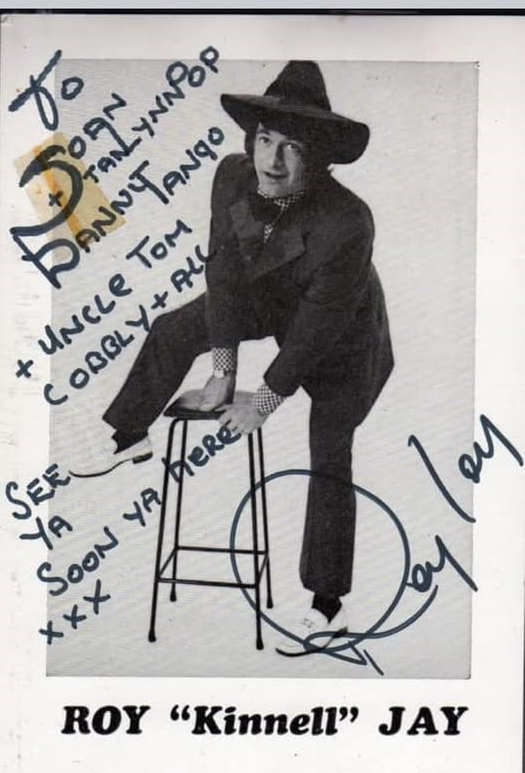 To
JOAN
+ STAN LYNN POP
DANNY TANGO
+ UNCLE TOM
COBBLY + ALL
SEE
YA
SOON YA HERE
xxx
Roy Jay
ROY “Kinnell” JAY